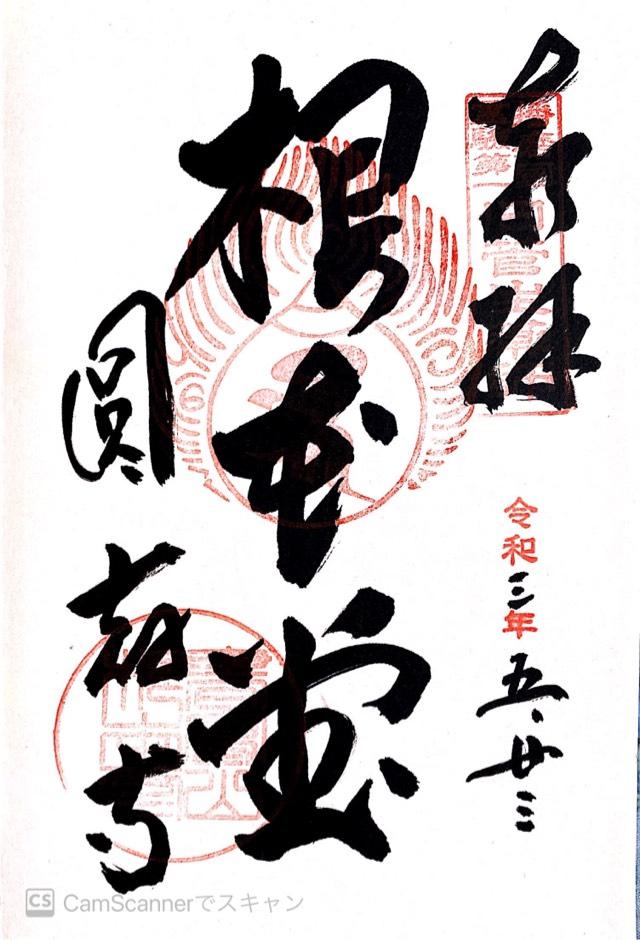 奉拝
令和三年
五、廿三
根本堂
圓教寺
CS CamScannerでスキャン